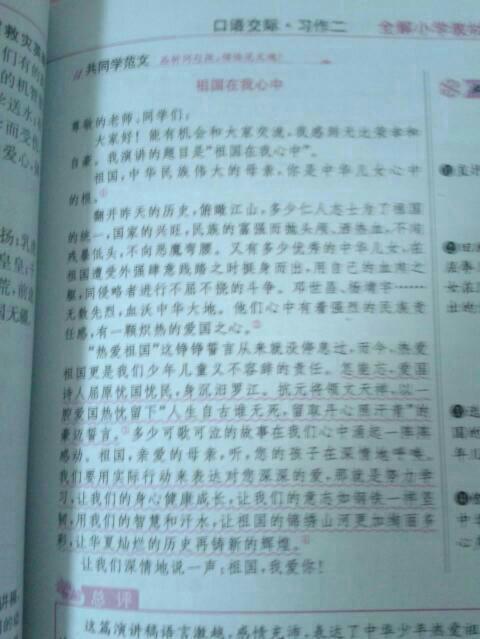 口语交际·习作二
全解小学
共同学范文
祖国在我心中
尊敬的老师、同学们：
大家好！能有机会和大家交流，我感到无比荣幸和
自豪。我演讲的题目是“祖国在我心中”。
祖国，中华民族伟大的母亲，你是中华儿女心中
的根。①
翻开昨天的历史，俯瞰江山，多少仁人志士为了祖国
的统一，国家的兴旺，民族的富强而抛头颅、洒热血，不向
残暴低头，不向恶魔弯腰。又有多少优秀的中华儿女，在
祖国遭受外强肆意践踏之时挺身而出，用自己的血肉之
躯，同侵略者进行不屈不挠的斗争。邓世昌、杨靖宇……
无数先烈，血沃中华大地。他们心中有着强烈的民族责
任感，有一颗炽热的爱国之心。②
“热爱祖国”这铮铮誓言从来就没停息过，而今，热爱
祖国更是我们少年儿童义不容辞的责任。怎能忘，爱国
诗人屈原忧国忧民，身沉汨罗江。抗元将领文天祥，以一
腔爱国热忱留下“人生自古谁无死，留取丹心照汗青”的
豪迈誓言。③多少可歌可泣的故事在我们心中涌起一阵阵
感动。祖国，亲爱的母亲，听，您的孩子在深情地呼唤。
我们要用实际行动来表达对您深深的爱，那就是努力学
习，让我们的身心健康成长，让我们的意志如钢铁一样坚
韧，用我们的智慧和汗水，让祖国的锦绣山河更加绚丽多
彩，让华夏灿烂的历史再铸新的辉煌。④
让我们深情地说一声：祖国，我爱你！
总评
这篇演讲稿语言激越，感情充沛，表达了中华少年热爱祖